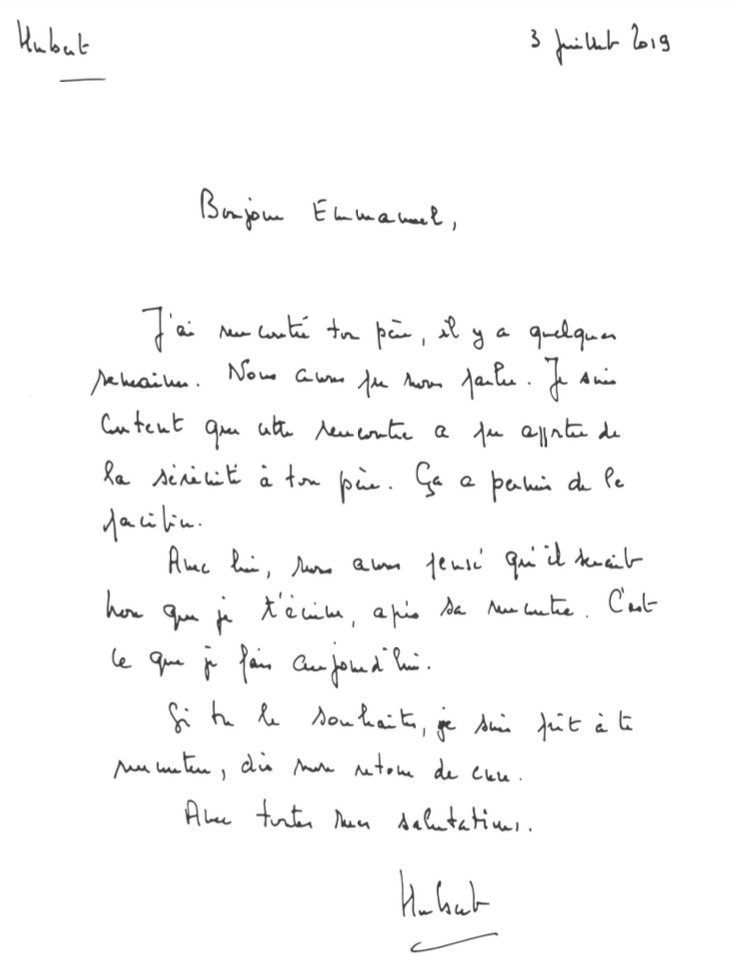 Hubert
3 Juillet 2019
Bonjour Emmanuel,
J'ai rencontré ton père, il y a quelques
semaines. Nous avons pu nous parler. Je suis
content que cette rencontre a pu apporter de
la sérénité à ton père. Ça a permis de le
pacifier.
Avec lui, nous avons pensé qu'il serait
bon que je t'écrive, après sa rencontre. C'est
ce que je fais aujourd'hui.
Si tu le souhaites, je suis prêt à te
rencontrer, dès mon retour de
Avec toutes mes salutations.
Hubert